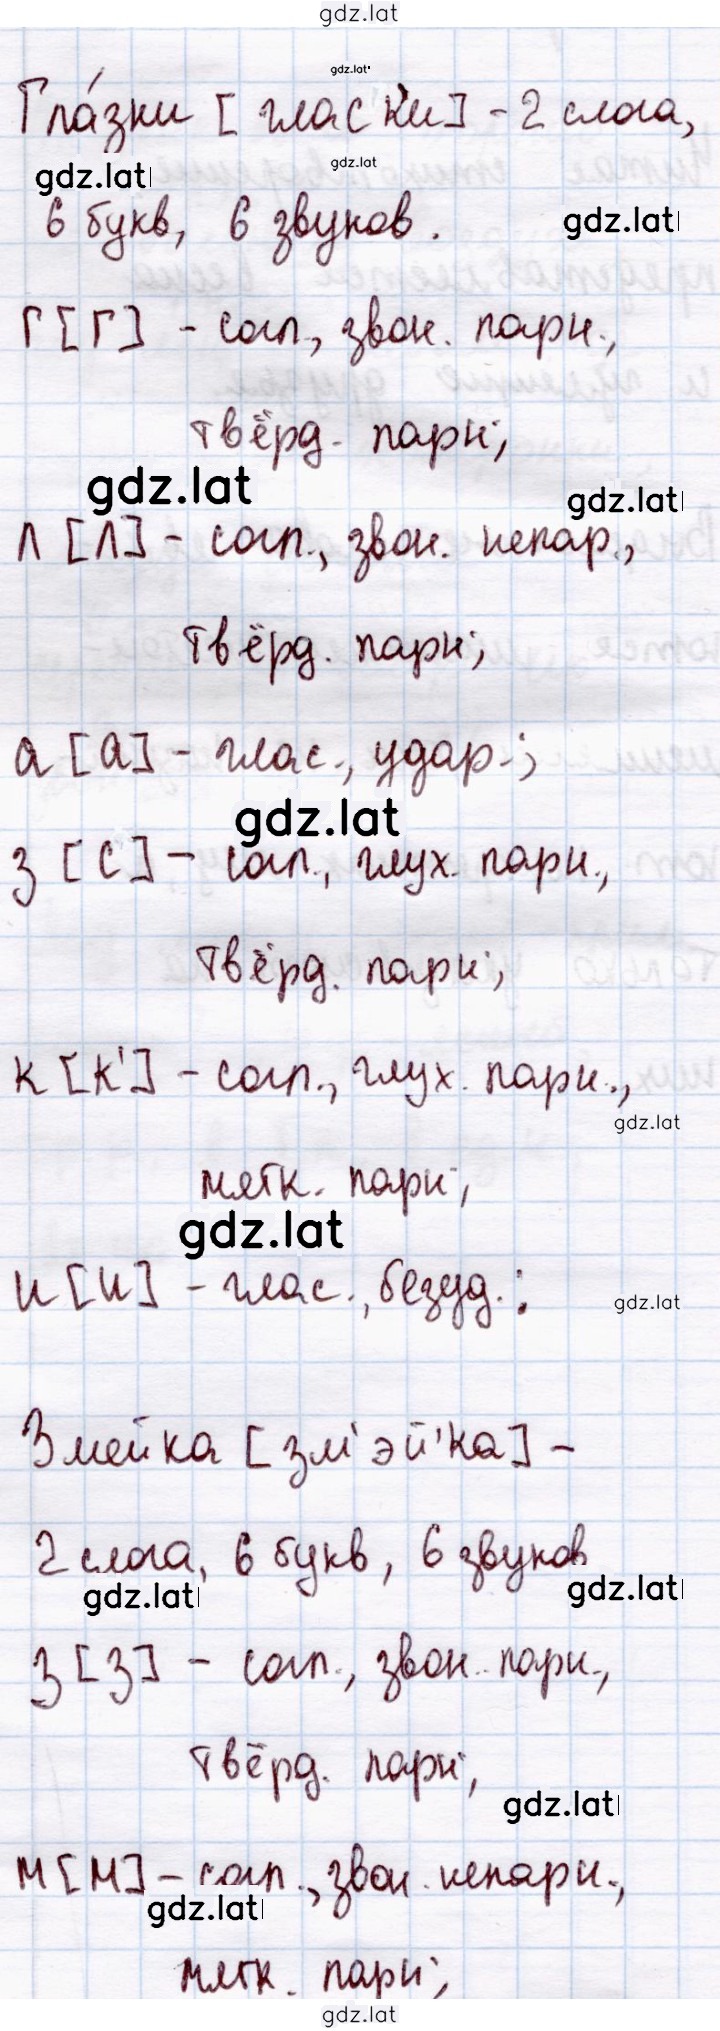 gdz.lat
gdz.lat
Гла́зки [глас'к'и] - 2 слога,
gdz.lat
gdz.lat
6 букв, 6 звуков.
gdz.lat
г [г] - согл., звон. парн.,
твёрд. парн;
gdz.lat
gdz.lat
л [л] - согл., звон. непар.,
твёрд. парн;
а [а] - глас., удар.;
gdz.lat
з [с] - согл., глух. парн.,
твёрд. парн;
к [к'] - согл., глух. парн.,
gdz.lat
мягк. парн;
gdz.lat
и [и] - глас., безуд.;
gdz.lat
Змейка [зм'эй'ка] -
2 слога, 6 букв, 6 звуков
gdz.lat
gdz.lat
з [з] - согл., звон. парн.,
твёрд. парн;
gdz.lat
м [м] - согл., звон. непарн.,
gdz.lat
мягк. парн;
gdz.lat